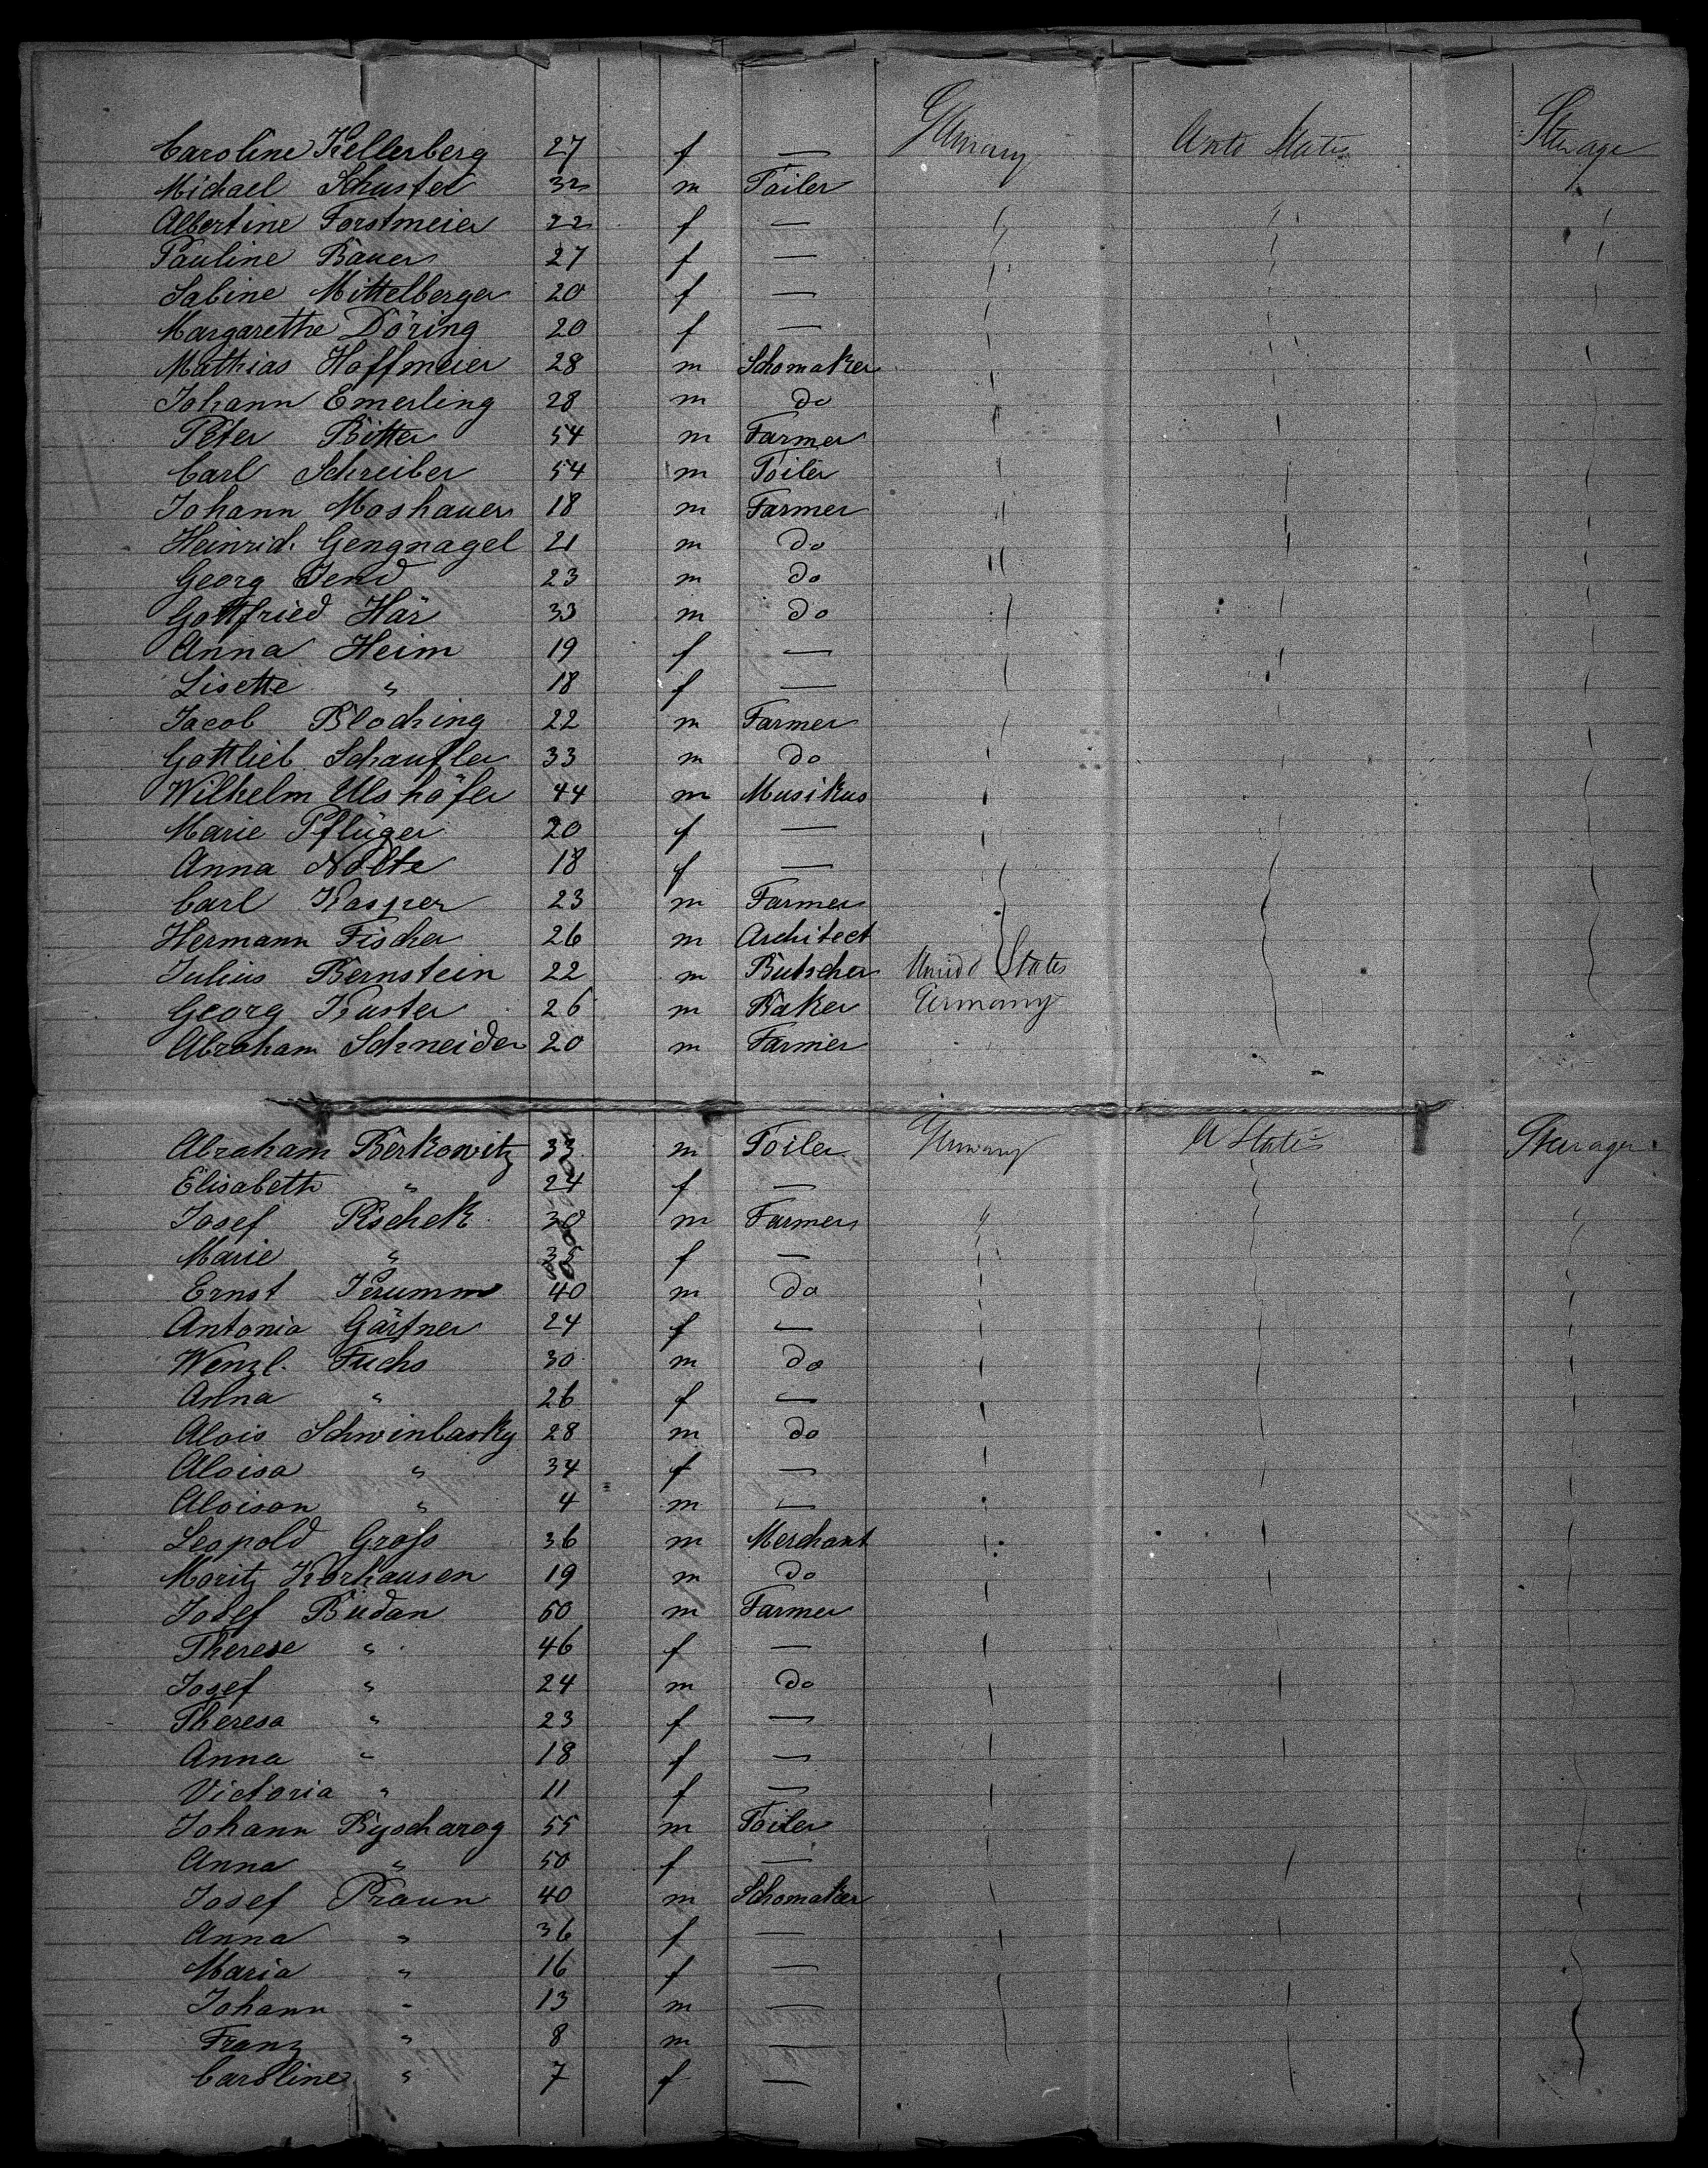 Caroline Kellerberg 27 f — Germany Unitd States Steerage
Michael Schuster 32 m Toiler
Albertine Forstmeier 22 f —
Pauline Bauer 27 f —
Sabine Mittelberger 20 f —
Margarethe Döring 20 f —
Mathias Hoffmeier 28 m Schomaker
Johann Emerling 28 m do
Peter Bitter 54 m Farmer
Carl Schreiber 54 m Toiler
Johann Moshauer 18 m Farmer
Heinrich Gengnagel 21 m do
Georg 23 m do
Gottfried Här 33 m do
Anna Heim 19 f —
Lisette " 18 f —
Jacob Bloching 22 m Farmer
Gottlieb Schaufler 33 m do
Wilhelm Ulshöfer 44 m Musikus
Marie Pflüger 20 f —
Anna Nolte 18 f —
Carl Kasper 23 m Farmer
Hermann Fischer 26 m Architect
Julius Bernstein 22 m Butscher Unitd States
Georg Kuster 26 m Baker Germany
Abraham Schneider 20 m Farmer
Abraham Berkowitz 33 m Toiler Germany U States Steerage
Elisabeth " 24 f —
Josef Pischek 30 m Farmer
Marie " 35 f —
Ernst Krumm 40 m do
Antonia Gärtner 24 f —
Wenzl. Fuchs 30 m do
Anna " 26 f —
Alois Schwinbasky 28 m do
Aloisa " 34 f —
Aloison " 4 m —
Leopold Groß 36 m Merchant
Moritz Korhausen 19 m do
Josef Budan 60 m Farmer
Therese " 46 f —
Josef " 24 m do
Theresa " 23 f —
Anna " 18 f —
Victoria " 11 f —
Johann Byscharog 55 m Toiler
Anna " 50 f —
Josef Praun 40 m Schomaker
Anna " 36 f —
Maria " 16 f —
Johann " 13 m —
Franz " 8 m —
Caroline " 7 f —